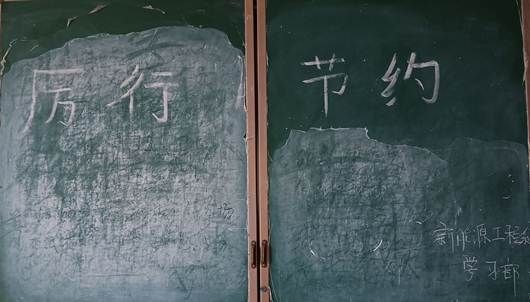 厉行节约
新能源工程系
学习部